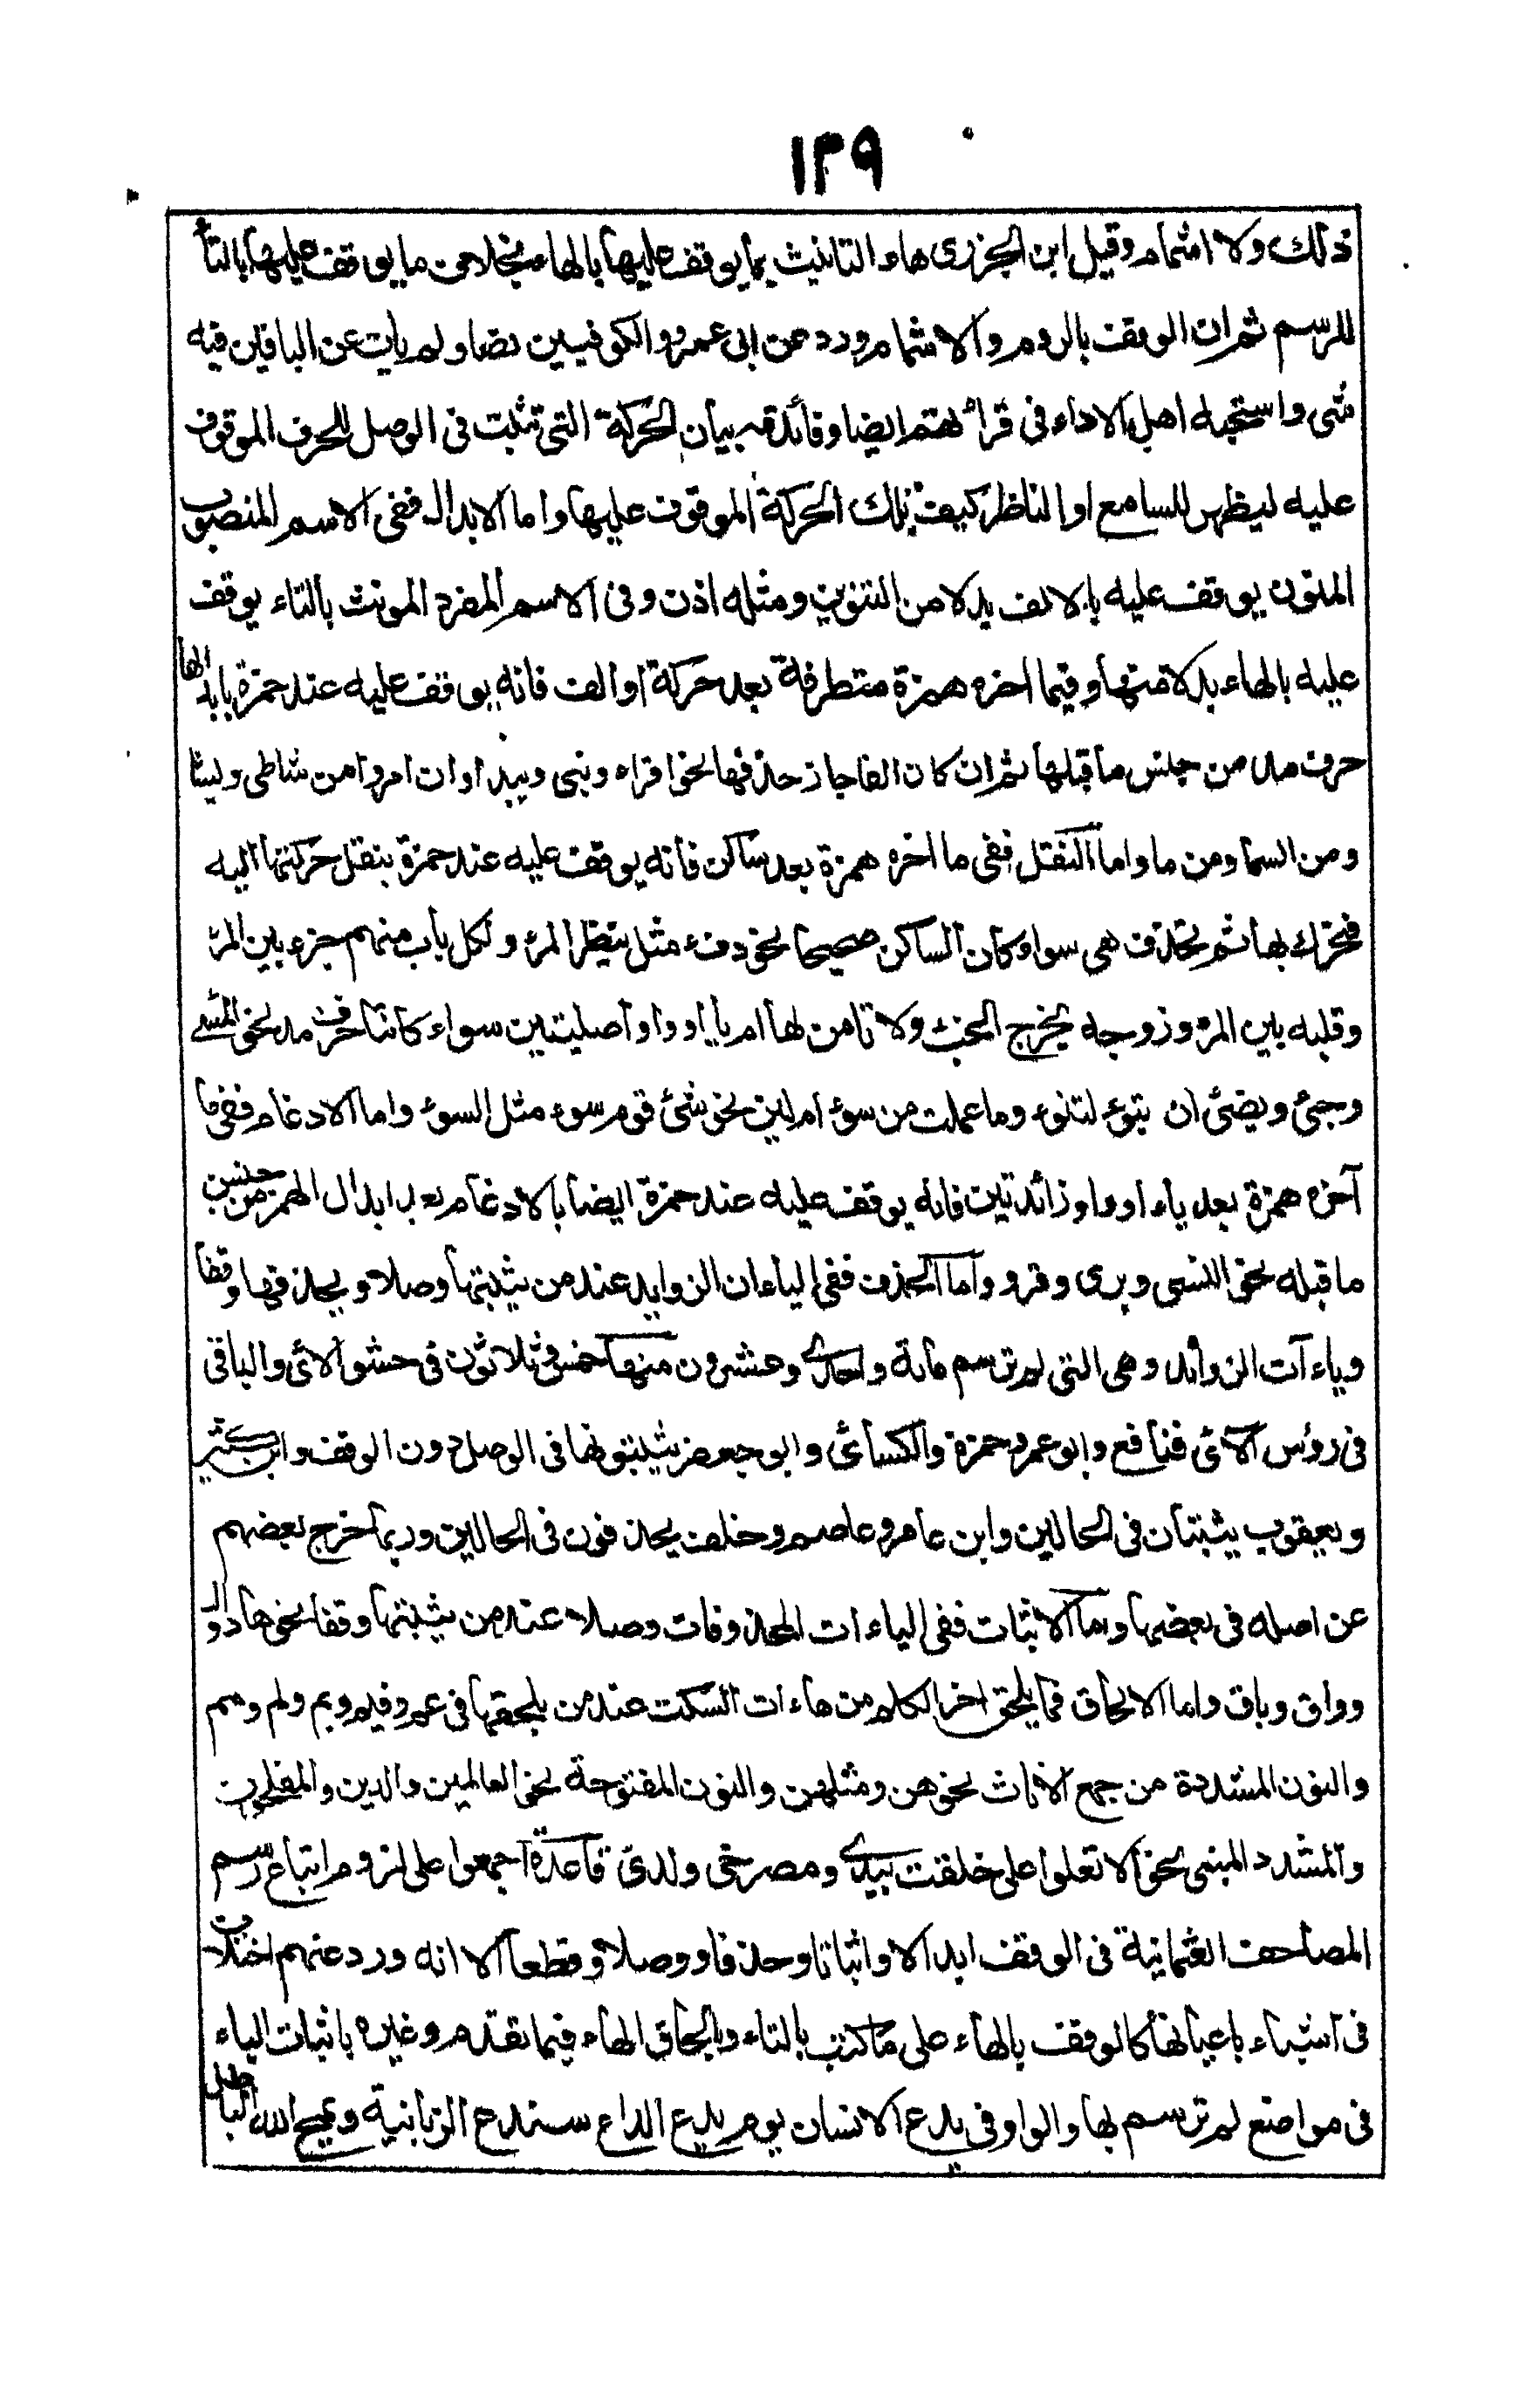 ١٣٩
ذلك ولا اشمام وقيل ابن الجزرى هاء التانيث بما يوقف عليها بالهاء بخلاف ما يوقف عليها بالتاء
للرسم ثم ان الوقف بالروم والاشمام ورد عن ابى عمرو والكوفيين نصا ولم يأت عن الباقين فيه
شى واستحبه اهل الاداء فى قرائتهم ايضا وفائدته بيان الحركة التى تثبت فى الوصل للحرف الموقوف
عليه ليظهر للسامع او الناظر كيف تلك الحركة الموقوف عليها واما الابدال ففى الاسم المنصوب
المنون يوقف عليه بالالف بدلا من التنوين ومثله اذن وفى الاسم المفرد المونث بالتاء يوقف
عليه بالهاء بدلا منها وفيما اخره همزة متطرفة بعد حركة او الف فانه يوقف عليه عند حمزة بابدالها
حرف مد من جنس ما قبلها ثم ان كان الفا جاز حذفها نحو اقراء ونبى ويبداو ان امروا من شاطى وليشا
ومن السما ومن ما واما النقل ففى ما اخره همزة بعد ساكن فانه يوقف عليه عند حمزة بنقل حركتها اليه
فتحرك بها ثم تحذف هى سواء كان الساكن صحيحا نحو دفء مثل ينظر المرء ولكل باب منهم جزء بين المرء
وقلبه بين المرء وزوجه يخرج الخبء ولا ثامن لها ام يا او واو اصليتين سواء كانتا حرف مد نحو المسئ
وجئ ويضئ ان تبوء لتنوء وما عملت من سوء ام لين نحو شئ قوم سوء مثل السوء واما الادغام ففى ما
آخره همزة بعد ياء او واو زائدتين فانه يوقف عليه عند حمزة ايضا بالادغام بعد ابدال الهمز من جنس
ما قبله نحو النسى وبرى وقرو واما الحذف ففى الياءات الزوايد عند من يثبتها وصلا ويحذفها وقفا
وياءآت الزوائد وهى التى لم ترسم مائة واحدى وعشرون منها خمس وثلاثون فى حشو الآئ والباقى
فى رؤس الآئ فنافع وابو عمرو حمزة والكسائى وابو جعفر يثبتونها فى الوصل دون الوقف وابن كثير
ويعقوب يثبتان فى الحالين وابن عامر وعاصم وخلف يحذفون فى الحالين وربما خرج بعضهم
عن اصله فى بعضها واما الاثبات ففى الياءات المحذوفات وصلا عند من يثبتها وقفا نحو هاد وال
وواق وباق واما الالحاق فما يلحق اخر الكلم من هاءات السكت عند من يلحقها فى عم وفيم وبم ولم ومم
والنون المشددة من جمع الاناث نحو هن ومثلهن والنون المفتوحة نحو العالمين والدين والمفلحون
والمشدد المبنى نحو الا تعلوا على خلقت بيدى ومصرخى ولدى قاعدة اجمعوا على لزوم اتباع رسم
المصاحف العثمانية فى الوقف ابدالا واثباتا وحذفا ووصلا وقطعا الا انه ورد عنهم اختلاف
فى اشياء باعيانها كالوقف بالهاء على ما كتب بالتاء وبالحاق الهاء فيما تقدم وغيره باثبات الياء
فى مواضع لم ترسم بها والواو فى يدع الانسان يوم يدع الداع سندع الزبانية ويمح الله الباطل